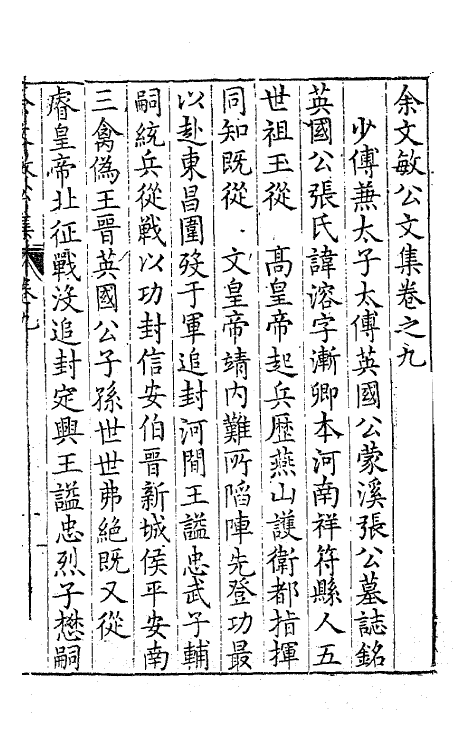 余文敏公文集卷之九
少傅蒹太子太傅英國公蒙溪張公墓誌銘
英國公張氏諱溶字漸卿本河南祥符縣人五
世祖玉從 高皇帝起兵歷燕山護衛都指揮
同知既從 文皇帝靖内難所䧟陣先登功最
以赴東昌圍歿于軍追封河間王謚忠武子輔
嗣統兵從戰以功封信安伯晉新城侯平安南
三禽僞王晉英國公子孫世世弗絶既又從
睿皇帝北征戰沒追封定興王謚忠烈子懋嗣